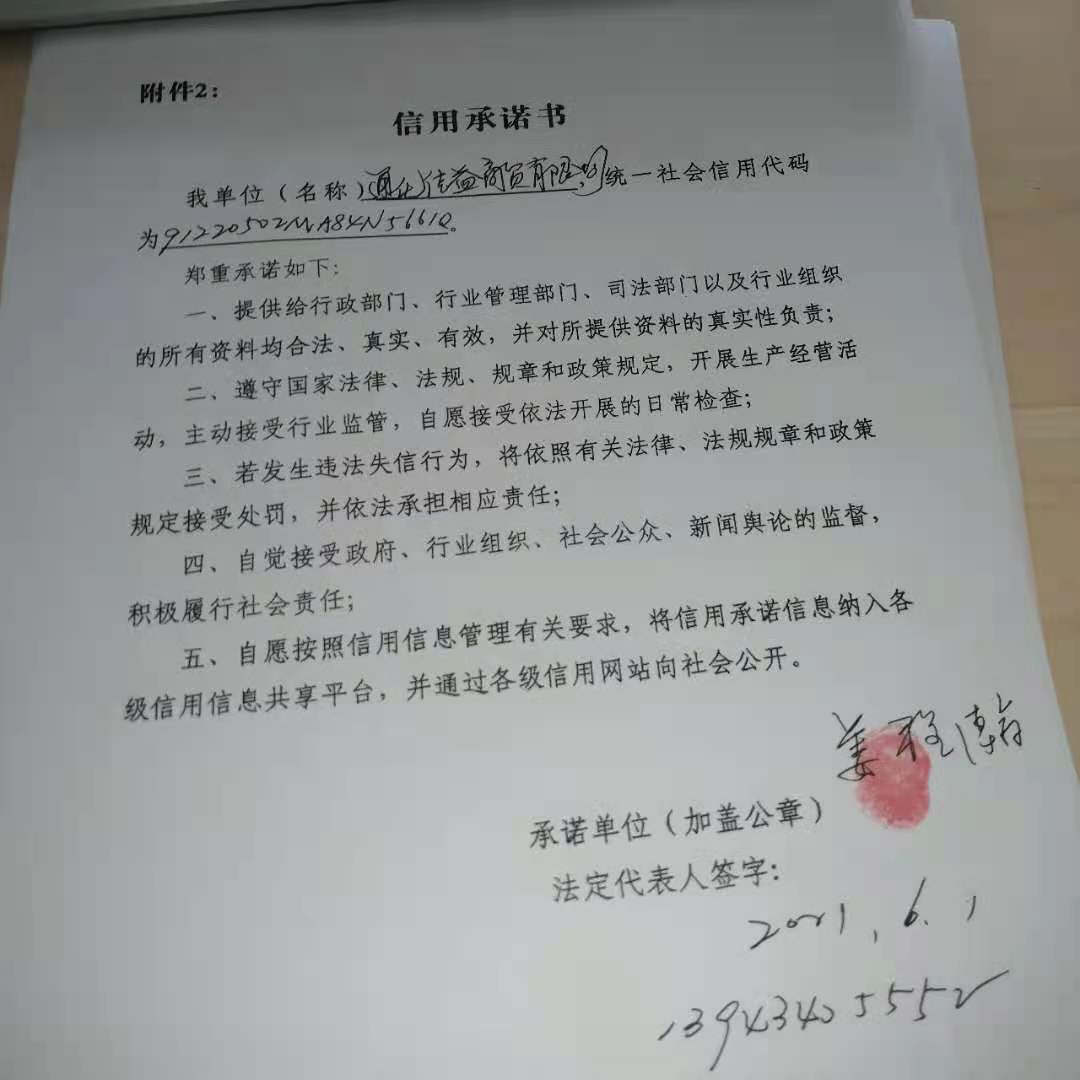 附件2：
信用承诺书
我单位（名称）通化佳益商贸有限公司，统一社会信用代码
为91220502MA84N5661Q。
郑重承诺如下：
一、提供给行政部门、行业管理部门、司法部门以及行业组织
的所有资料均合法、真实、有效，并对所提供资料的真实性负责；
二、遵守国家法律、法规、规章和政策规定，开展生产经营活
动，主动接受行业监管，自愿接受依法开展的日常检查；
三、若发生违法失信行为，将依照有关法律、法规规章和政策
规定接受处罚，并依法承担相应责任；
四、自觉接受政府、行业组织、社会公众、新闻舆论的监督，
积极履行社会责任；
五、自愿按照信用信息管理有关要求，将信用承诺信息纳入各
级信用信息共享平台，并通过各级信用网站向社会公开。
姜程瀚
承诺单位（加盖公章）
法定代表人签字：
2021.6.1
13943405552